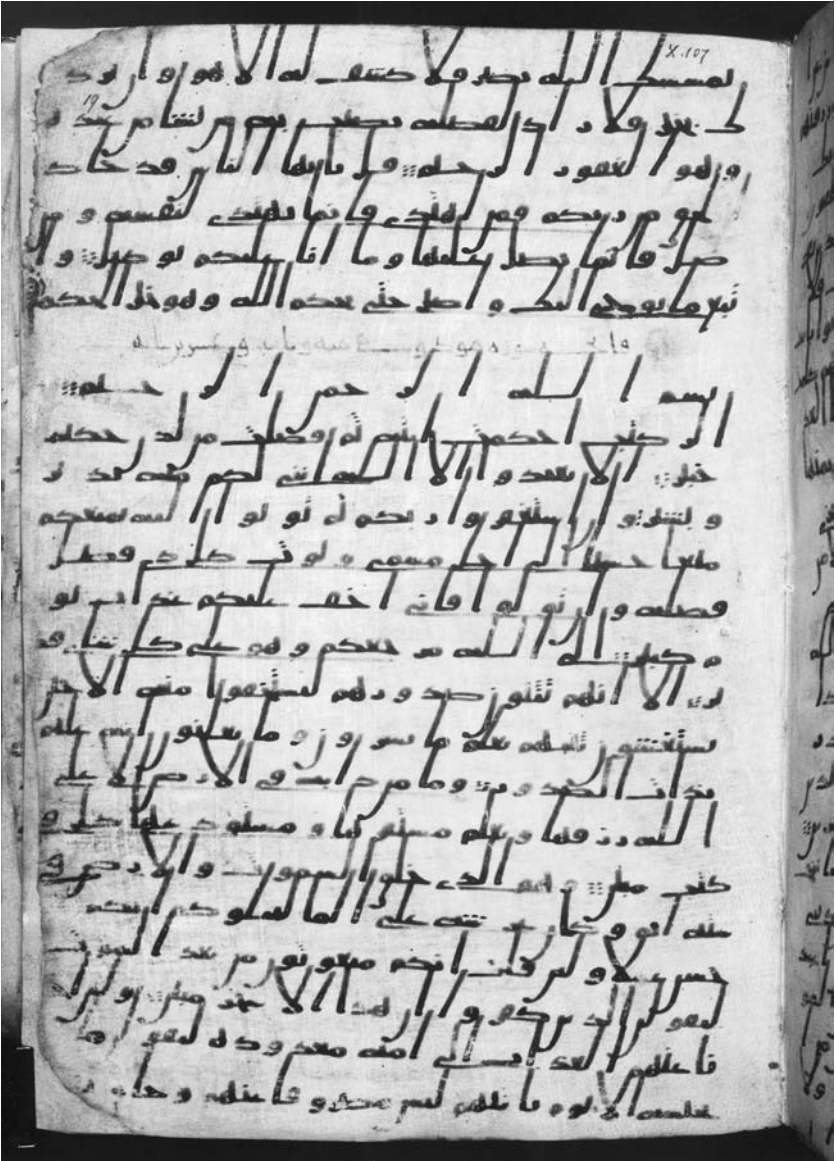 X. 107
19
يمسسك الله بضر فلا كشف له الا هو وان يرد
ك بخير فلا راد لفضله يصيب به من يشا من عبده
وهو الغفور الرحيم قل يايها الناس قد جاكم
الحق من ربكم فمن اهتدى فانما يهتدي لنفسه ومن
ضل فانما يضل عليها وما انا عليكم بوكيل وا
تبع ما يوحى اليك واصبر حتى يحكم الله وهو خير الحكمين
فاتحه سوره هود وعشرين
بسم الله الرحمن الرحيم
الر كتب احكمت ايته ثم فصلت من لدن حكيم
خبير الا تعبدوا الا الله انني لكم منه نذير
وبشير وان استغفروا ربكم ثم توبوا اليه يمتعكم
متعا حسنا الى اجل مسمى ويوت كل ذي فضل
فضله وان تولوا فاني اخف عليكم عذاب يو
م كبير الى الله مرجعكم وهو على كل شي قد
ير الا انهم يثنون صدورهم ليستخفوا منه الا حين
يستغشون ثيبهم يعلم ما يسرون وما يعلنون انه عليم
بذات الصدور وما من دابة في الارض الا على
الله رزقها ويعلم مستقرها ومستودعها كل في
كتب مبين وهو الذي خلق السموت والارض في
سته ايم وكان عرشه على الما ليبلوكم ايكم
احسن عملا ولئن قلت انكم مبعوثون من بعد الموت
ليقولن الذين كفروا ان هذا الا سحر مبين ولئن اخر
نا عنهم العذاب الى امه معدوده ليقولن ما
يحبسه الا يوم ياتيهم ليس مصروفا عنهم وحاق